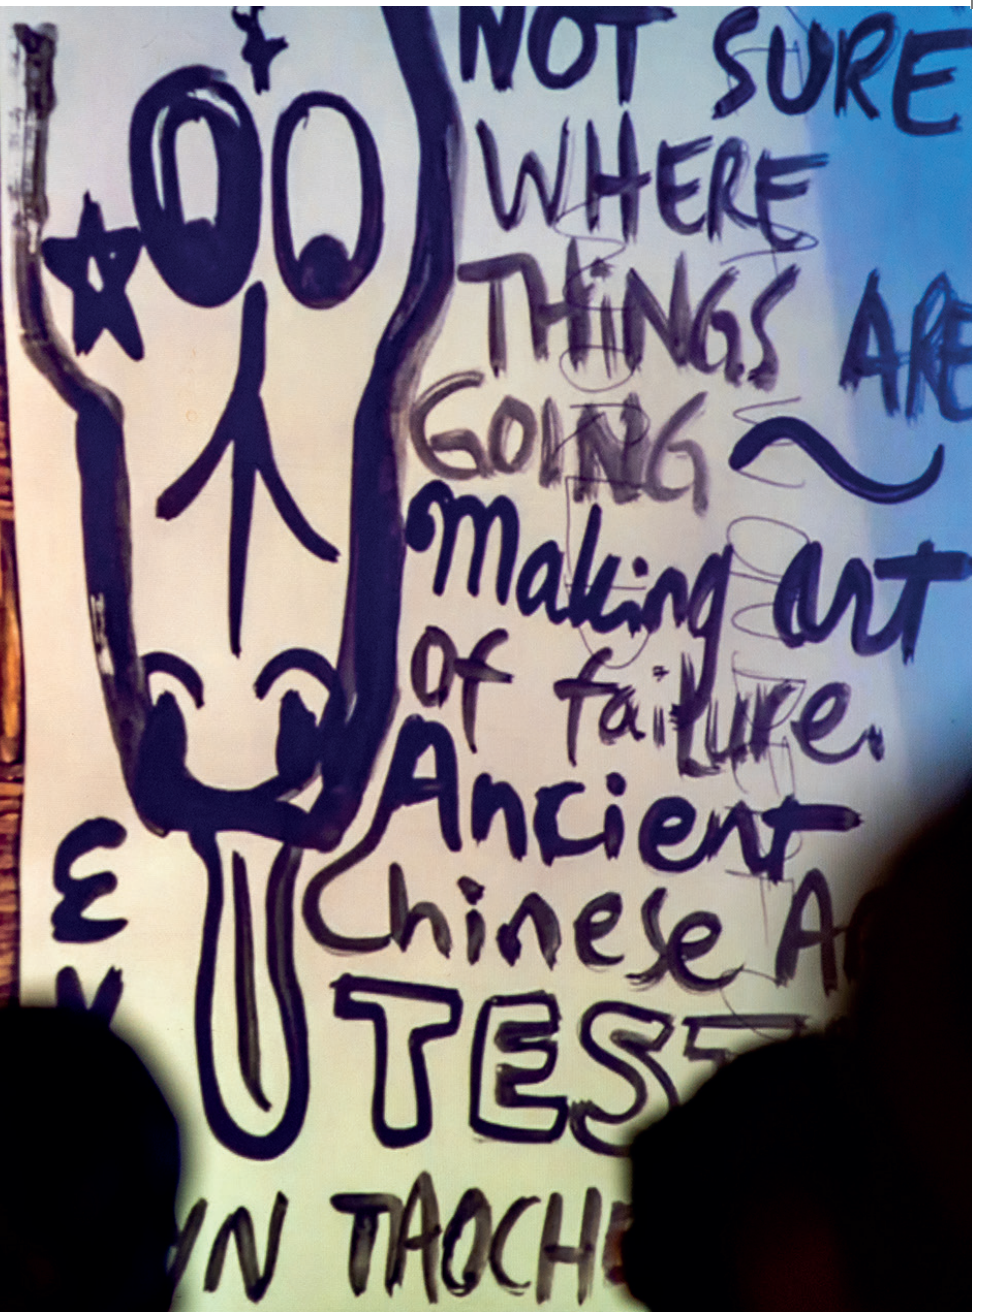 NOT SURE
WHERE
THINGS ARE
GOING ~
Making art
of failure.
Ancient
Chinese
TEST
TAOCH